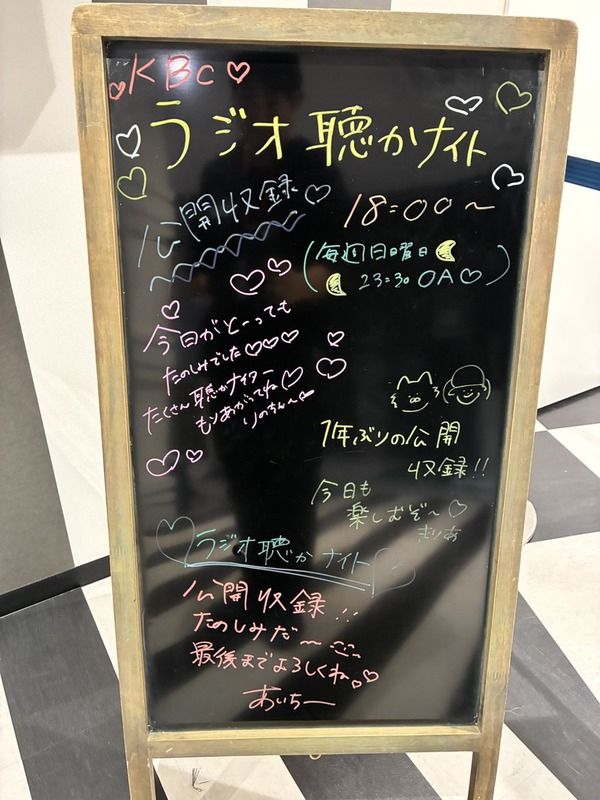 KBC
ラジオ聴かナイト
公開収録
18:00〜
(毎週日曜日
23:30 OA♡)
今日がとーっても
たのしみでした♡♡♡
たくさん聴かナイター
もりあがってね♡
りのちん〜
1年ぶりの公開
収録!!
今日も
楽しむぞ〜♡
きりあ
ラジオ聴かナイト
公開収録!!
たのしみだ〜
最後までよろしくね♡♡
あいちー